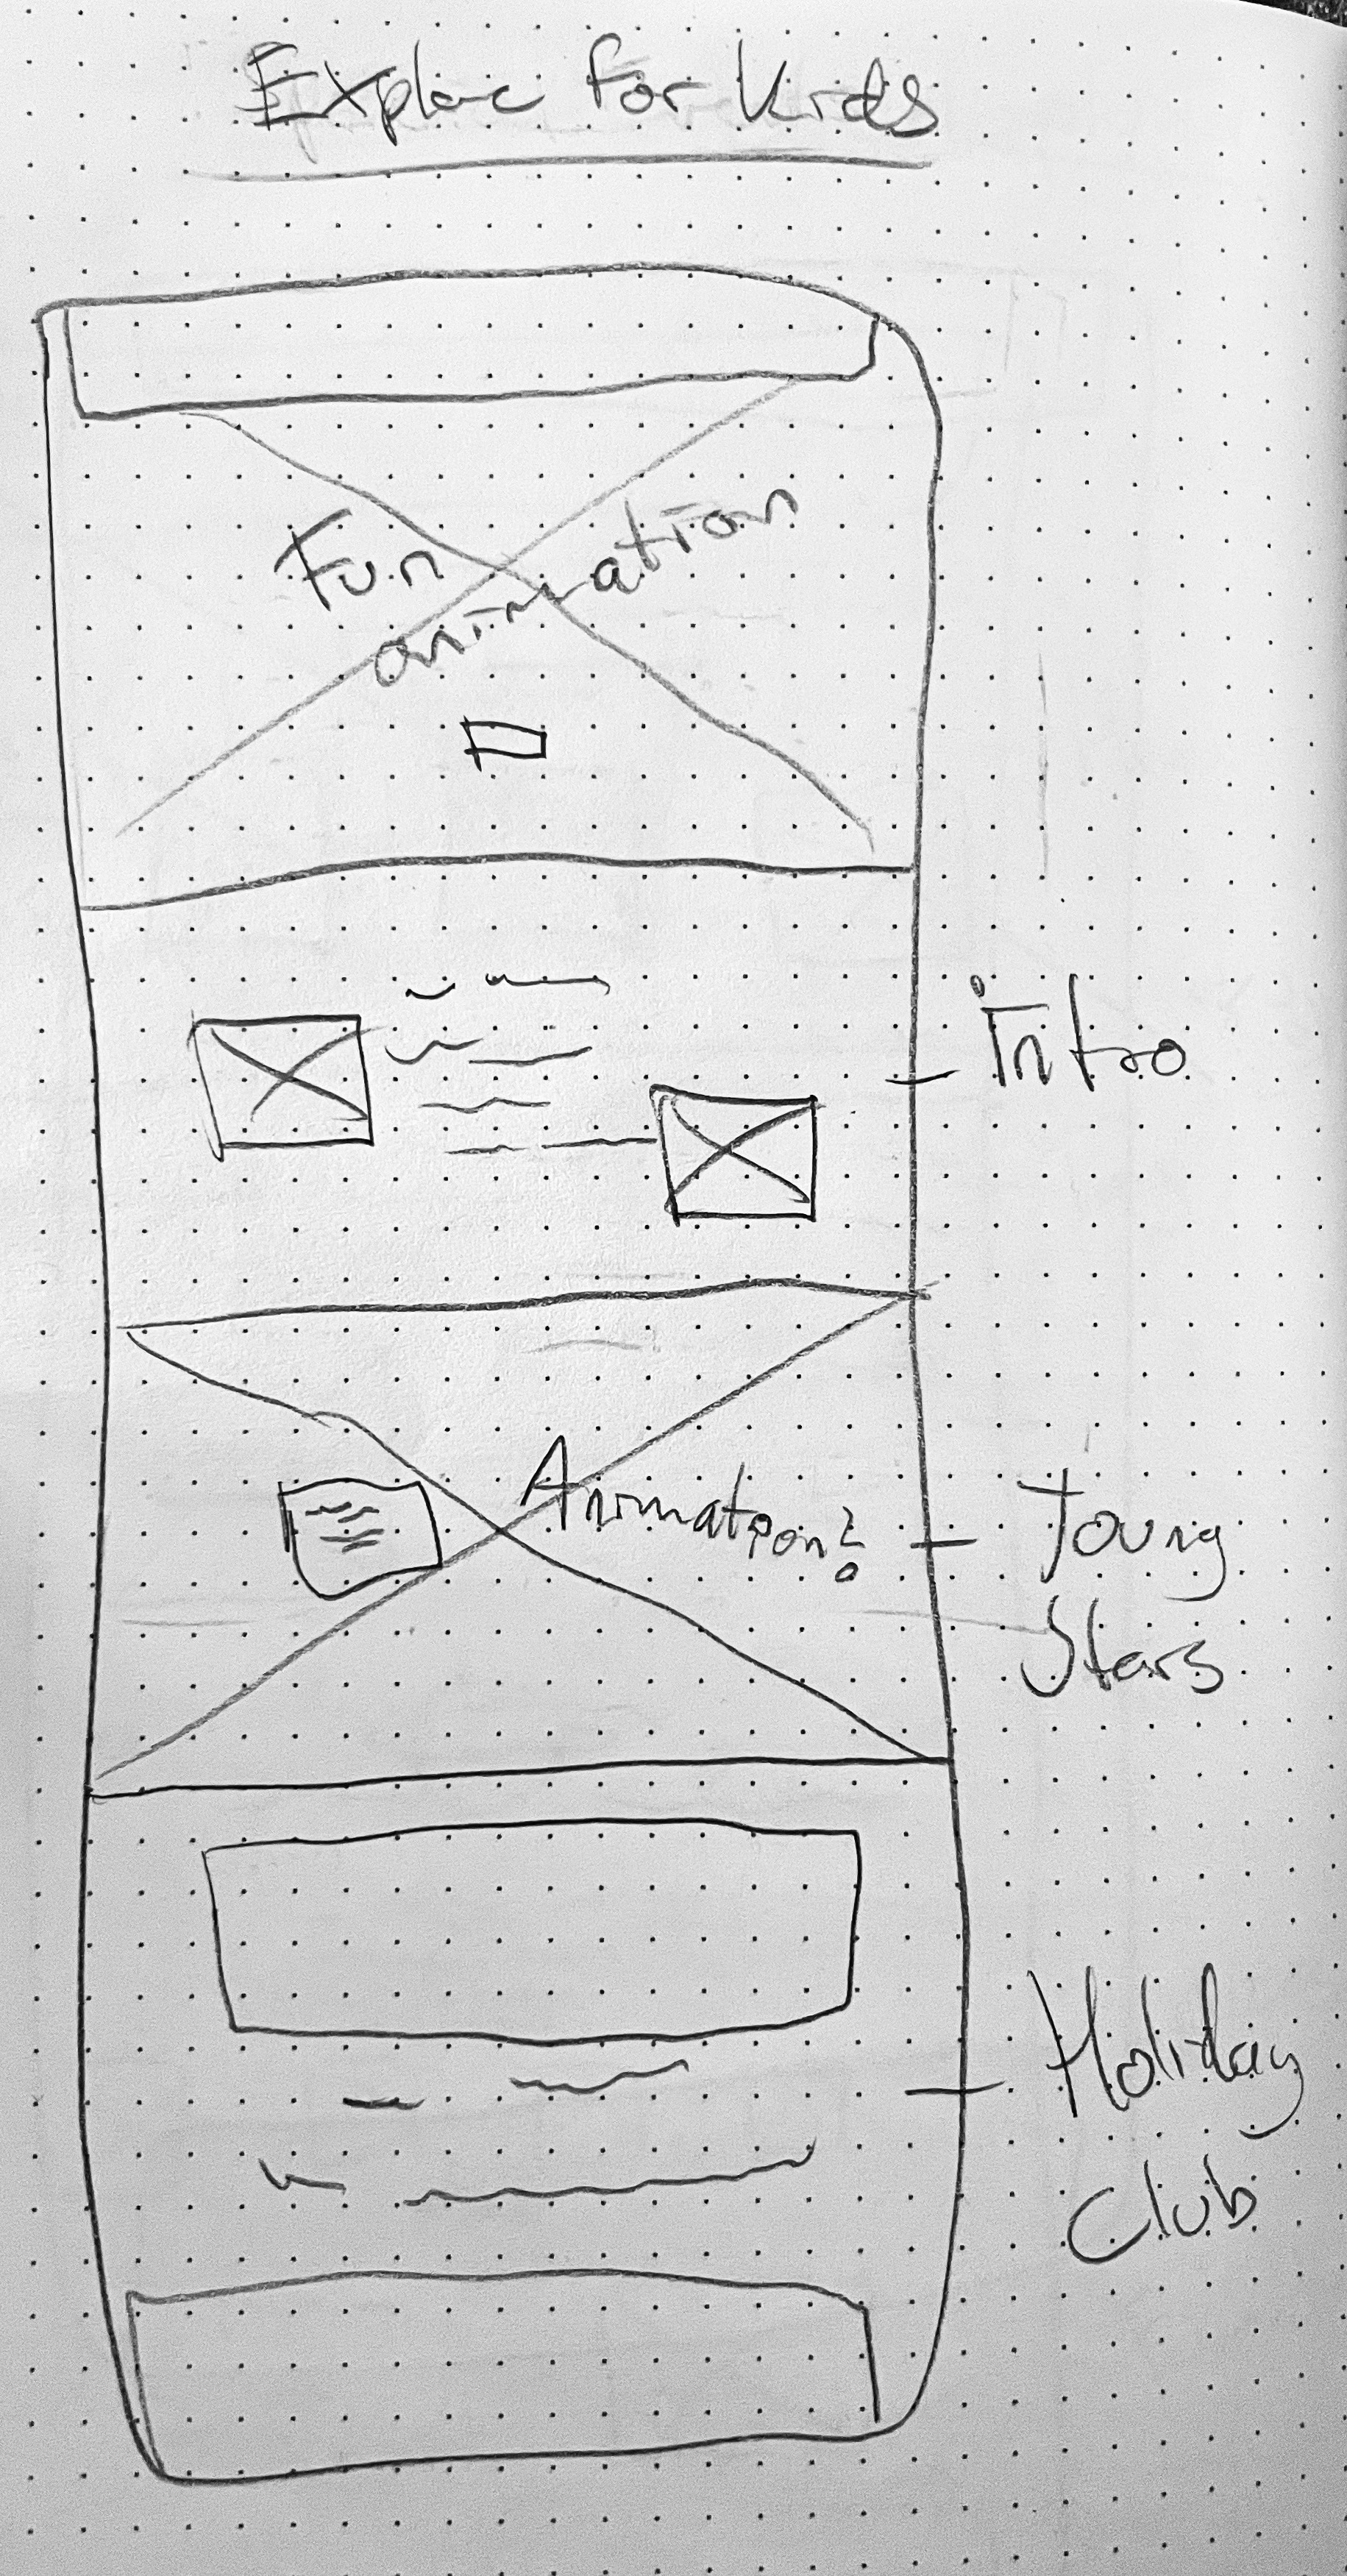 Explore for Kids
Fun
animation
Intro
Animation?
Young
Stars
Holiday
Club